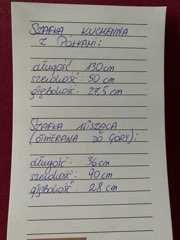 SZAFKA KUCHENNA
Z PÓŁKAMI:
długość: 130 cm
szerokość: 50 cm
głębokość: 27,5 cm
SZAFKA WISZĄCA
(OTWIERANA DO GÓRY):
długość: 36 cm
szerokość: 90 cm
głębokość: 28 cm